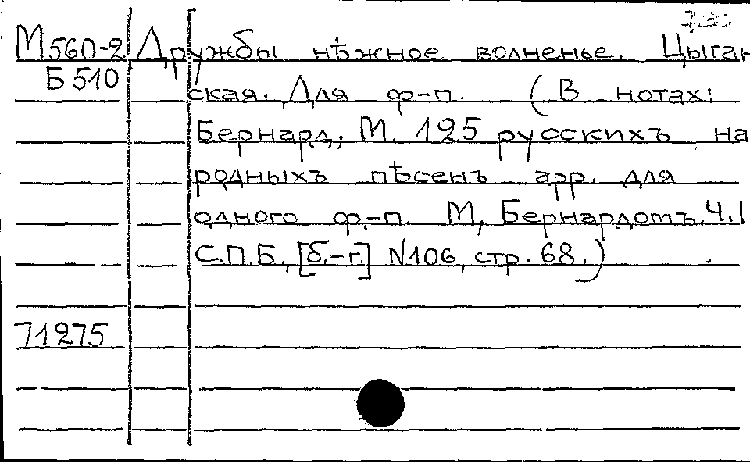 М560-2 Дружбы нѣжное волненье. Цыган
Б510 ская. Для ф-п. (В нотах:
Бернард, М. 125 русскихъ на
родныхъ пѣсенъ арр. для
одного ф.-п. М, Бернардотъ. Ч.I
С.П.Б., [б.-г.] N106, стр. 68.)
71275